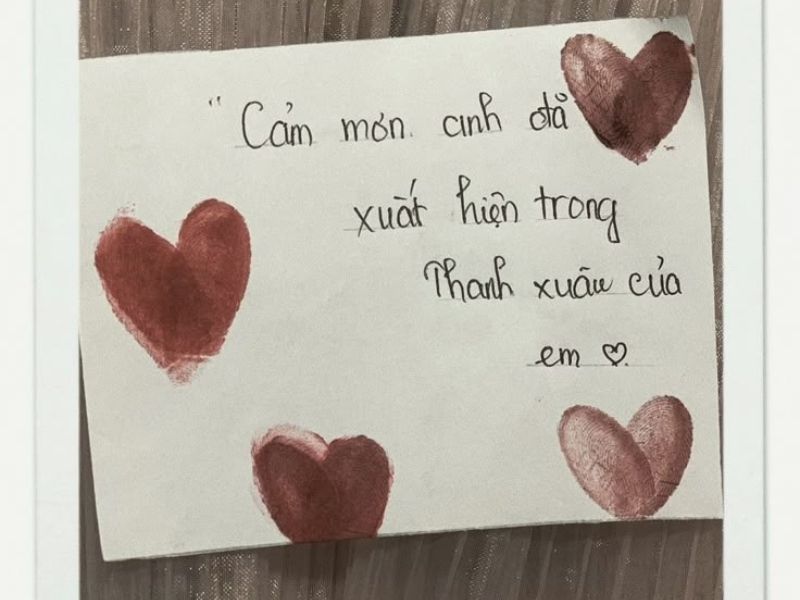 " Cảm mơn anh đã
xuất hiện trong
Thanh xuân của
em ♡